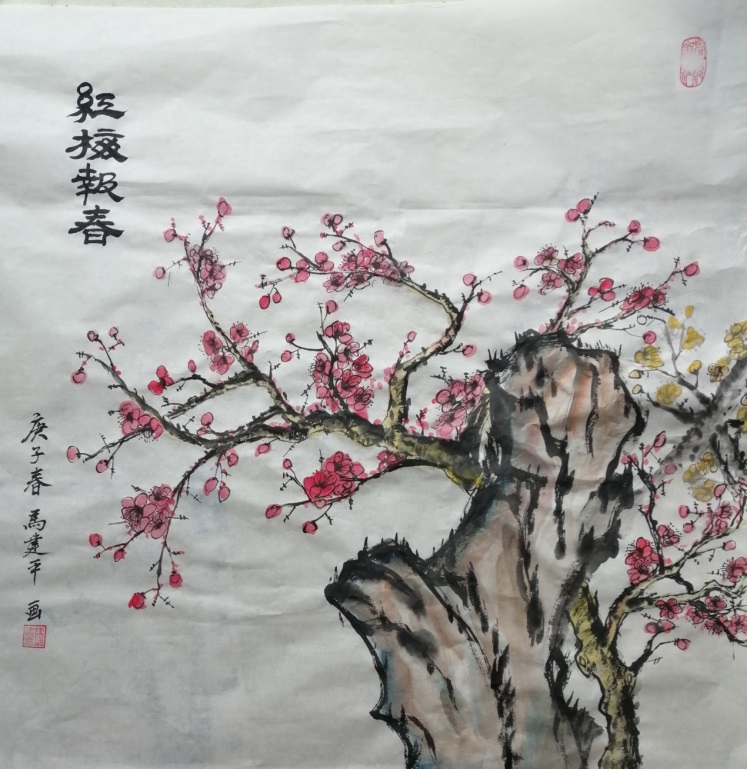 紅梅報春
庚子春馬建平画